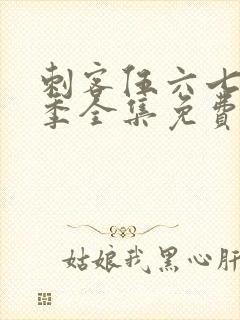 刺客伍六七
季全集免費
姑娘我黑心肝